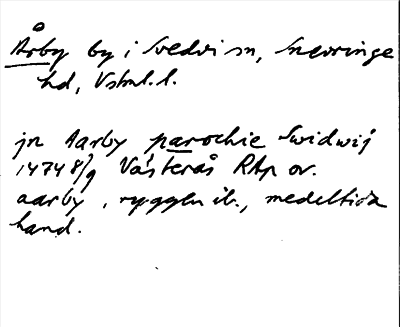 Årby by i Svedvi sn, Snevringe
hd, Vstml. l.
jn Aarby parochie Swidwij
1474 8/9 Västerås RAp or.
aarby, ryggln ib., medeltida
hand.